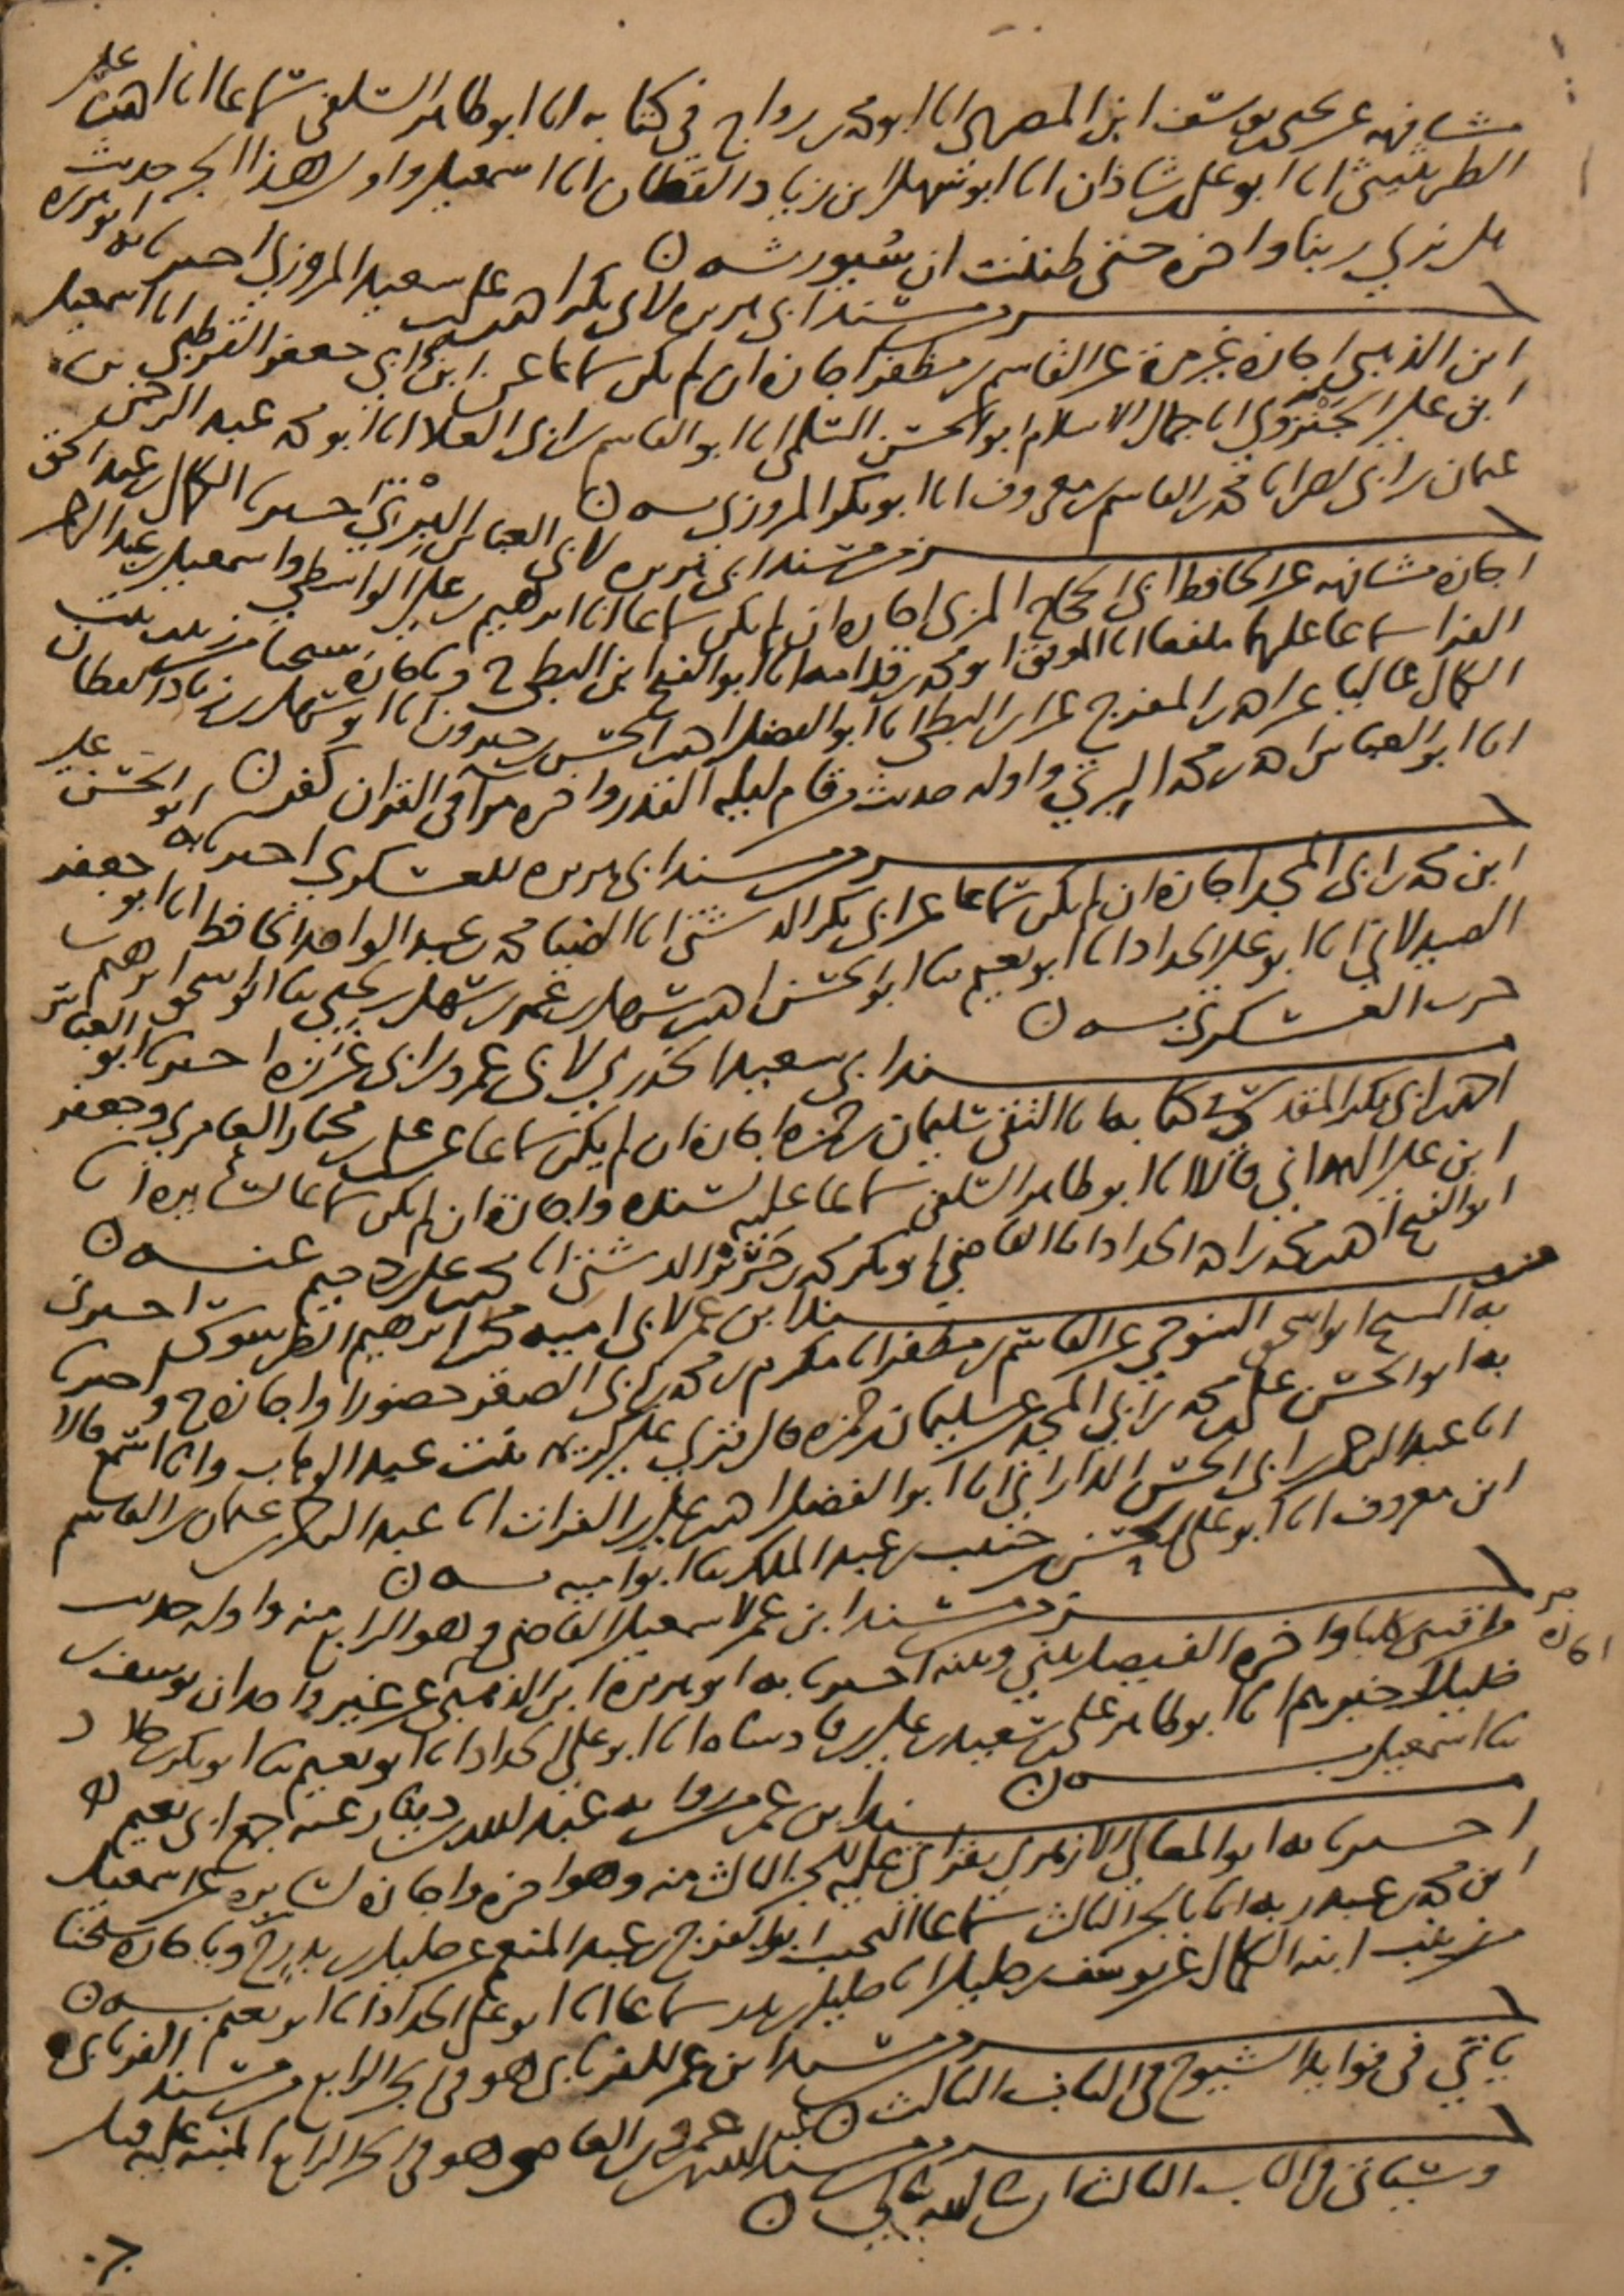 مشافهه عن يحيى بن يوسف ابن المصري انا ابو محمد بن رواج في كتابه انا ابو طاهر السلفي سماعا انا احمد بن علي
الطريثيثي انا ابو علي بن شاذان انا ابو سهل بن زياد القطان انا اسمعيل واول هذا الجزء حديث
هل نري ربنا واخره حتى ظننت ان سيورثه ن
جزو مسند ابي هريرة لابي بكر احمد بن علي بن سعيد المروزي اخبرنا به ابو هريرة
ابن الذهبي اجازة غير مرة عن القاسم بن مظفر اجازة ان لم يكن سماعا عن ابي جعفر القرطبي انا اسمعيل
ابن علي الجنزوي انا جمال الاسلام ابو الحسن السلمي انا ابو القاسم بن ابي العلا انا ابو محمد عبد الرحمن بن
عثمان بن ابي نصر انا محمد بن القاسم بن معروف انا ابو بكر المروزي به ن
جزو مسند ابي هريرة لابي العباس البرتي اخبرنا الكمال بن عبد الحق
اجازة مشافهه عن الحافظ ابي الحجاج المزي اجازة ان لم يكن سماعا انا ابرهيم بن علي الواسطي واسمعيل بن عبد الرحمن
الفرا سماعا عليهما ملفقا انا الموفق ابو محمد بن قدامه انا ابو الفتح ابن البطي ح وباجازة شيخنا من زينب بنت
الكمال غالبا عن احمد بن المفرج عن ابن البطي انا ابو الفضل احمد بن الحسن بن خيرون انا ابو سهل بن زياد القطان
انا ابو العباس احمد بن محمد البرتي واوله حديث من قام ليلة القدر واخره مرآ في القران كفر ن
جزو مسند ابي هريرة للعسكري اخبرنا به ابو الحسن علي
ابن محمد بن ابي المجد اجازة ان لم يكن سماعا عن ابي بكر الدشتي انا الضيا محمد بن عبد الواحد الحافظ انا ابو جعفر
الصيدلاني انا ابو علي الحداد انا ابو نعيم ثنا ابو الحسن احمد بن سهل بن عمر بن سهل بن يحيى ثنا ابو اسحق ابرهيم بن
حرب العسكري به ن
مسند ابي سعيد الخدري لابي عمرو بن ابي غرزه اخبرنا ابو العباس
احمد بن ابي بكر المقدسي في كتابه انا التقي سليمان بن حمزة اجازة ان لم يكن سماعا عن علي بن مختار العامري وجعفر
ابن علي الهمداني قالا انا ابو طاهر السلفي سماعا عليه لسنده واجازة ان لم يكن سماعا لسايره انا
ابو الفتح احمد بن محمد بن احمد الحداد انا القاضي ابو بكر محمد بن خزنو الدشتي انا محمد بن علي بن دحيم عنه ن
جزو مسند ابن عمر لابي اميه محمد بن ابرهيم الطرسوسي اخبرني
به الشيخ ابو اسحق التنوخي عن القاسم بن مظفر انا مكرم بن محمد بن ابي الصقر حضورا واجازة ح واخبرنا
به ابو الحسن علي بن محمد بن ابي المجد عن سليمان بن حمزة قال قري علي كريمة بنت عبد الوهاب وانا اسمع قالا
انا عبد الرحمن بن ابي الحسن الداراني انا ابو الفضل احمد بن علي بن الفرات انا عبد الرحمن بن عثمان بن القاسم
ابن معروف انا ابو علي الحسن بن حبيب بن عبد الملك ثنا ابو اميه به ن
جزو مسند ابن عمر لاسمعيل القاضي وهو الرابع منه واوله حديث
ما اقتنى كلبا واخره الفيصل بيني وبينه اخبرنا به ابو هريرة ابن الذهبي عن غير واحد ان يوسف بن
خليل اخبرهم انا ابو طاهر علي بن سعيد بن علي بن فادشاه انا ابو علي الحداد انا ابو نعيم ثنا ابو بكر بن خلاد
ثنا اسمعيل به ن
مسند ابن عمر رواية عبد الله بن دينار عنه جمع ابي نعيم ن
اخبرنا به ابو المعالي الازهري بقراتي عليه للجز الثالث منه وهو اخره واجازة لسايره عن اسمعيل
ابن محمد بن عبد ربه انا بالجز الثالث سماعا النجيب ابو الفرج بن عبد المنعم عن خليل بن بدر ح وباجازة شيخنا
من زينب ابنة الكمال عن يوسف بن خليل انا خليل بن بدر سماعا انا ابو علي الحداد انا ابو نعيم به ن
جزو مسند ابن عمر للفريابي هو في الجز الرابع من مسند الفريابي
ياتي في فوايد الشيوخ في الباب الثالث ن
جزو مسند عبد الله بن عمرو بن العاص هو في الجز الرابع المنبه عليه قبل
وسياتي في الباب الثالث ان شا الله تعالى ن